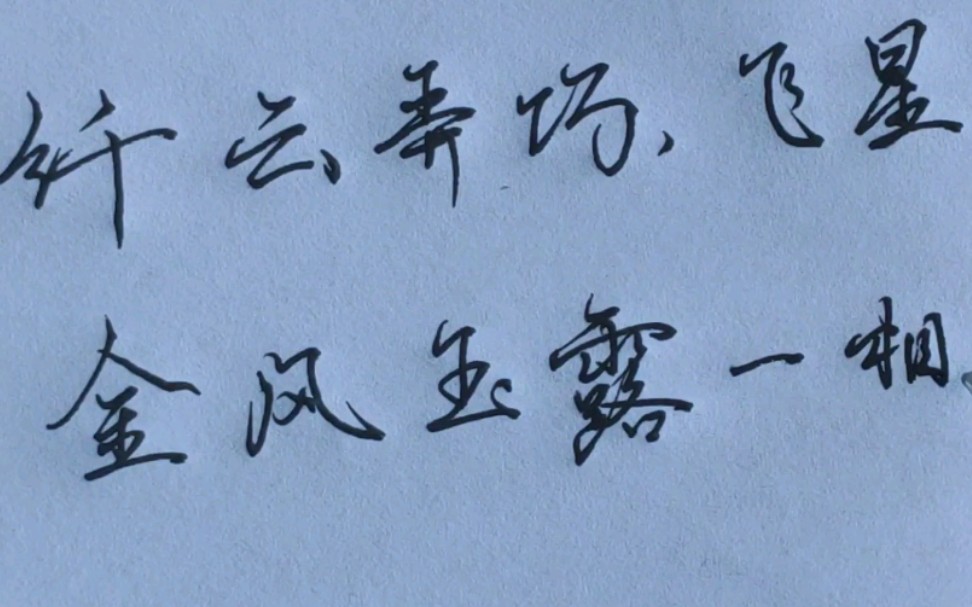 纤云弄巧、飞星
金风玉露一相